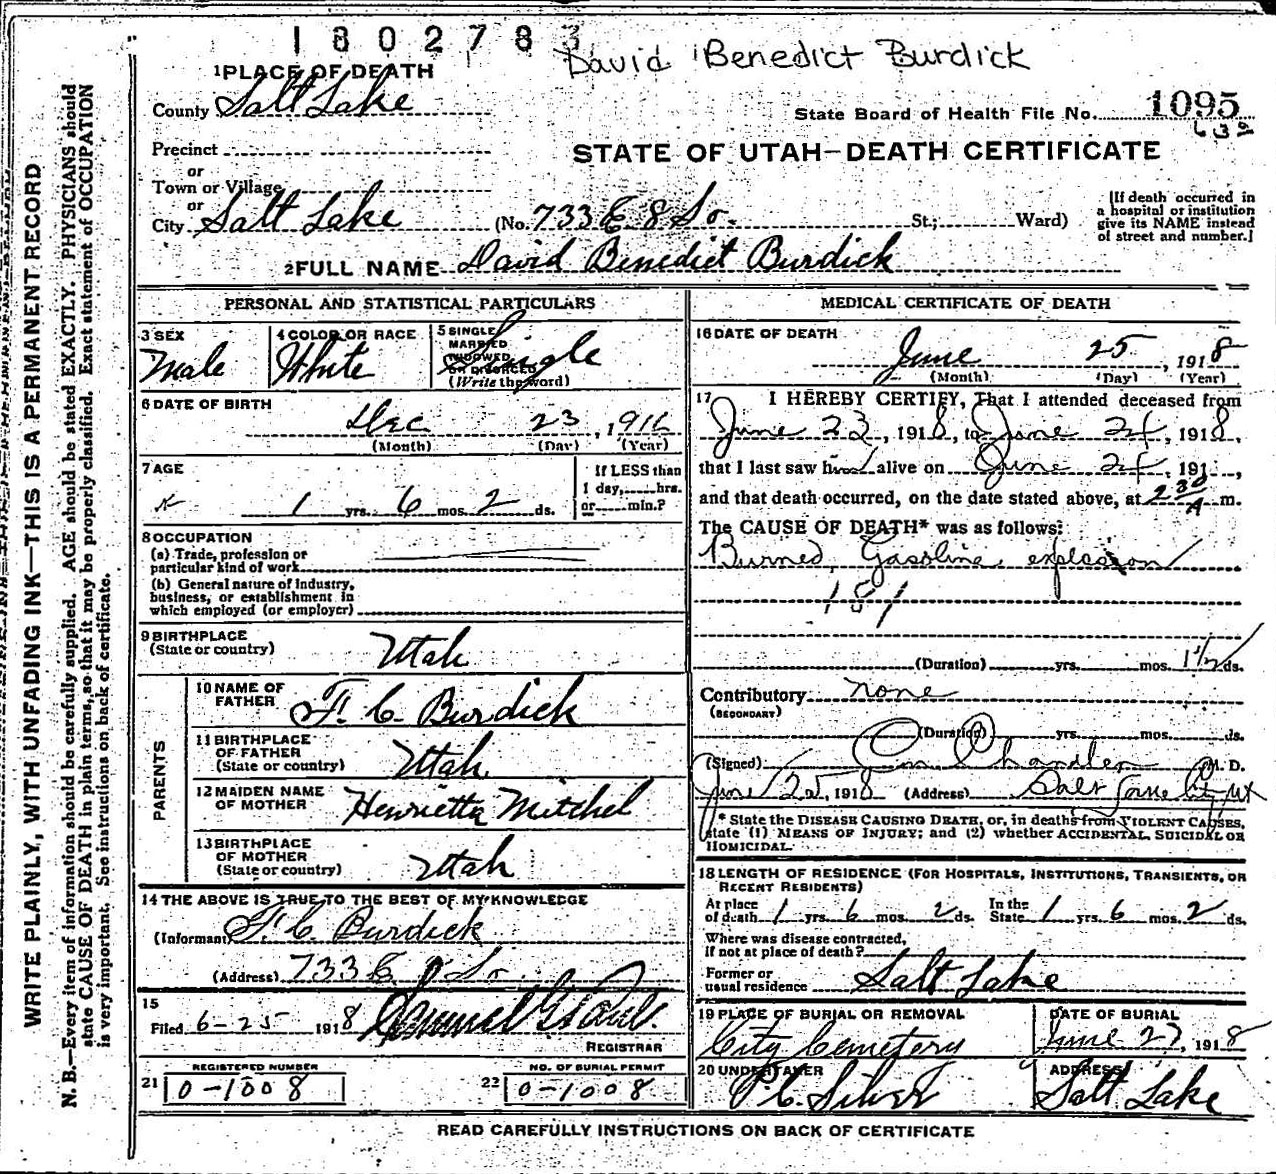 1802783
David Benedict Burdick
1 PLACE OF DEATH
County Salt Lake
State Board of Health File No. 1095
639
Precinct
or
STATE OF UTAH—DEATH CERTIFICATE
Town or Village
or
City Salt Lake (No. 733 E 8 So. St.; Ward)
[If death occurred in a hospital or institution give its NAME instead of street and number.]
2 FULL NAME David Benedict Burdick
PERSONAL AND STATISTICAL PARTICULARS
3 SEX Male
4 COLOR OR RACE White
5 SINGLE MARRIED WIDOWED OR DIVORCED (Write the word) Single
6 DATE OF BIRTH
Dec 23, 1916
(Month) (Day) (Year)
7 AGE
1 yrs. 6 mos. 2 ds.
If LESS than 1 day, hrs. or min.?
8 OCCUPATION
(a) Trade, profession or
particular kind of work
(b) General nature of industry,
business, or establishment in
which employed (or employer)
9 BIRTHPLACE
(State or country) Utah
PARENTS
10 NAME OF FATHER F. C. Burdick
11 BIRTHPLACE OF FATHER (State or country) Utah
12 MAIDEN NAME OF MOTHER Henrietta Mitchel
13 BIRTHPLACE OF MOTHER (State or country) Utah
14 THE ABOVE IS TRUE TO THE BEST OF MY KNOWLEDGE
(Informant) F. C. Burdick
(Address) 733 E 8 So.
15
Filed 6-25 1918 Samuel G. Paul.
REGISTRAR
REGISTERED NUMBER
21 0-1008
NO. OF BURIAL PERMIT
22 0-1008
MEDICAL CERTIFICATE OF DEATH
16 DATE OF DEATH
June 25, 1918
(Month) (Day) (Year)
17 I HEREBY CERTIFY, That I attended deceased from
June 23, 1918, to June 24, 1918,
that I last saw him alive on June 24, 191 ,
and that death occurred, on the date stated above, at 2 30 A m.
The CAUSE OF DEATH* was as follows:
Burned, Gasoline explosion
(Duration) yrs. mos. 1 1/2 ds.
Contributory none
(SECONDARY)
(Duration) yrs. mos. ds.
(Signed) Chandler M. D.
June 25, 1918 (Address) Salt Lake City Ut
* State the DISEASE CAUSING DEATH, or, in deaths from VIOLENT CAUSES,
state (1) MEANS OF INJURY; and (2) whether ACCIDENTAL, SUICIDAL OR
HOMICIDAL.
18 LENGTH OF RESIDENCE (FOR HOSPITALS, INSTITUTIONS, TRANSIENTS, OR
RECENT RESIDENTS)
At place of death 1 yrs. 6 mos. 2 ds. In the State 1 yrs. 6 mos. 2 ds.
Where was disease contracted,
if not at place of death?
Former or
usual residence Salt Lake
19 PLACE OF BURIAL OR REMOVAL
City Cemetery
DATE OF BURIAL
June 27, 1918
20 UNDERTAKER
P. C. Silver
ADDRESS
Salt Lake
READ CAREFULLY INSTRUCTIONS ON BACK OF CERTIFICATE
WRITE PLAINLY, WITH UNFADING INK—THIS IS A PERMANENT RECORD
N. B.—Every item of information should be carefully supplied. AGE should be stated EXACTLY. PHYSICIANS should
state CAUSE OF DEATH in plain terms, so that it may be properly classified. Exact statement of OCCUPATION
is very important. See instructions on back of certificate.